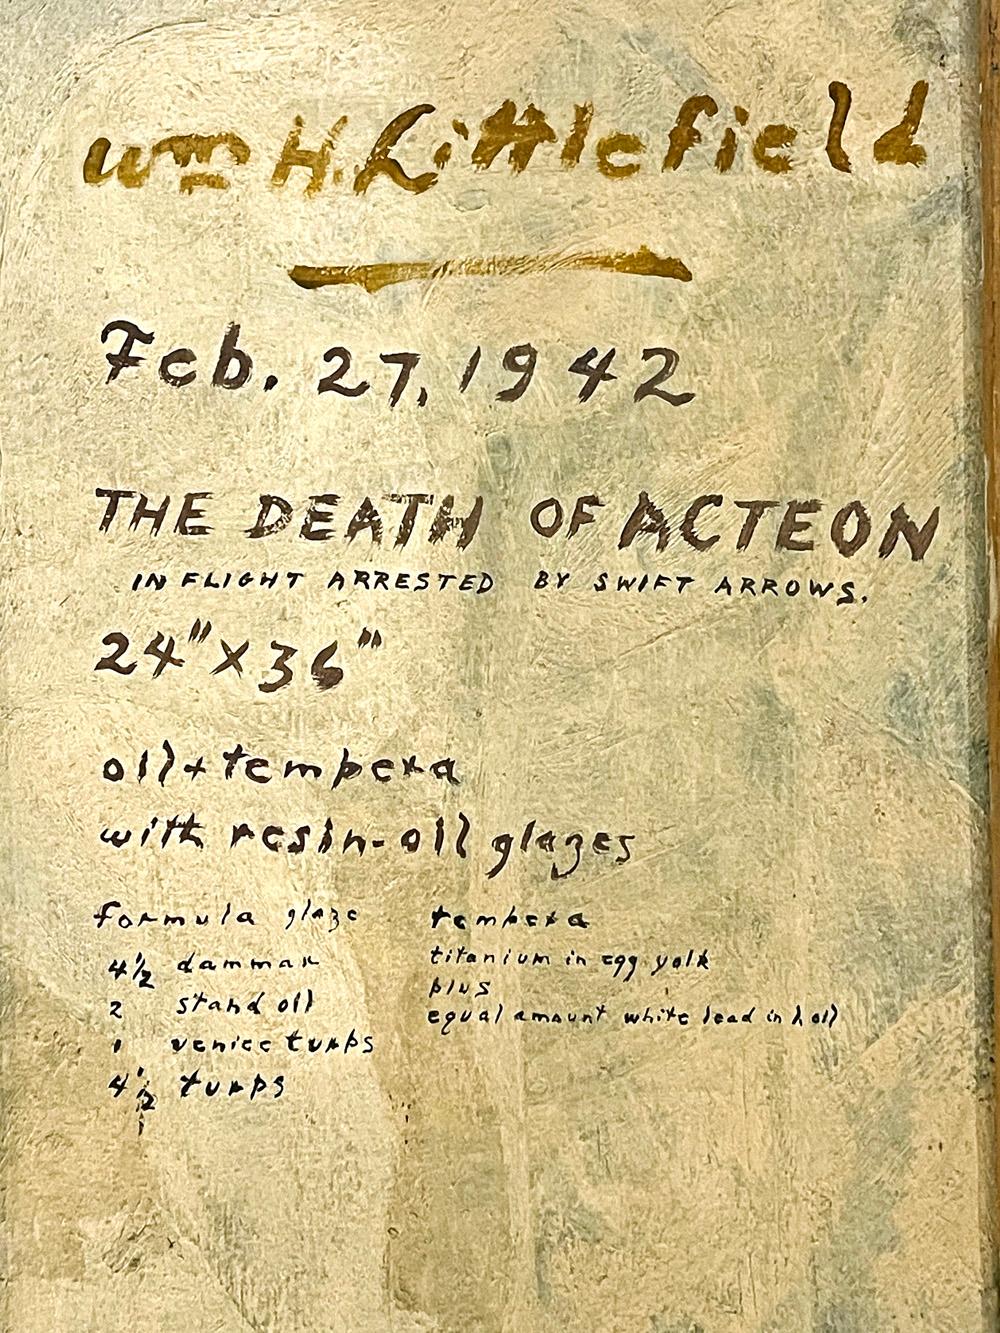 Wm H. Littlefield
Feb. 27, 1942
THE DEATH OF ACTEON
IN FLIGHT ARRESTED BY SWIFT ARROWS.
24" X 36"
oil + tempera
with resin-oil glazes
formula glaze
4 1/2 dammar
2 stand oil
1 venice turps
4 1/2 turps
tempera
titanium in egg yolk
plus
equal amount white lead in l oil